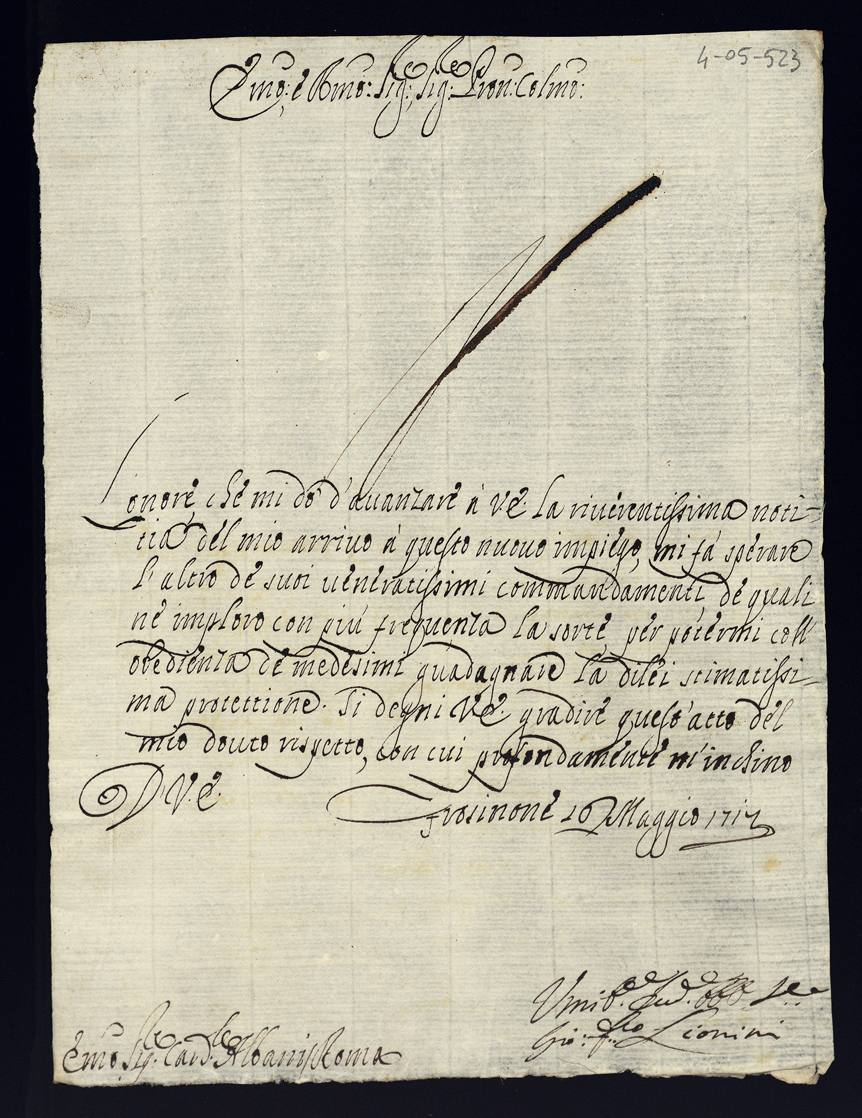 4-05-523
Emo: e Rmo: Sig:re Sig:re Pron: Colmo:
L'onore, che mi dò d'avanzare à V.E. la riverentissima noti-
tia del mio arrivo à questo nuovo impiego, mi fà sperare
l'altro de suoi veneratissimi commandamenti, de quali
ne imploro con più frequenza la sorte per potermi coll'
obedienza de medesimi guadagnare la dilei stimatissi-
ma protettione. Si degni V.E. gradire quest'atto del
mio dovuto rispetto, con cui profondamente m'inchino
D V.E.
Frosinone 10 Maggio 1717
Umil:e Obb:
Gio: Lionini
Emo Sig:re Card:le Albani Roma